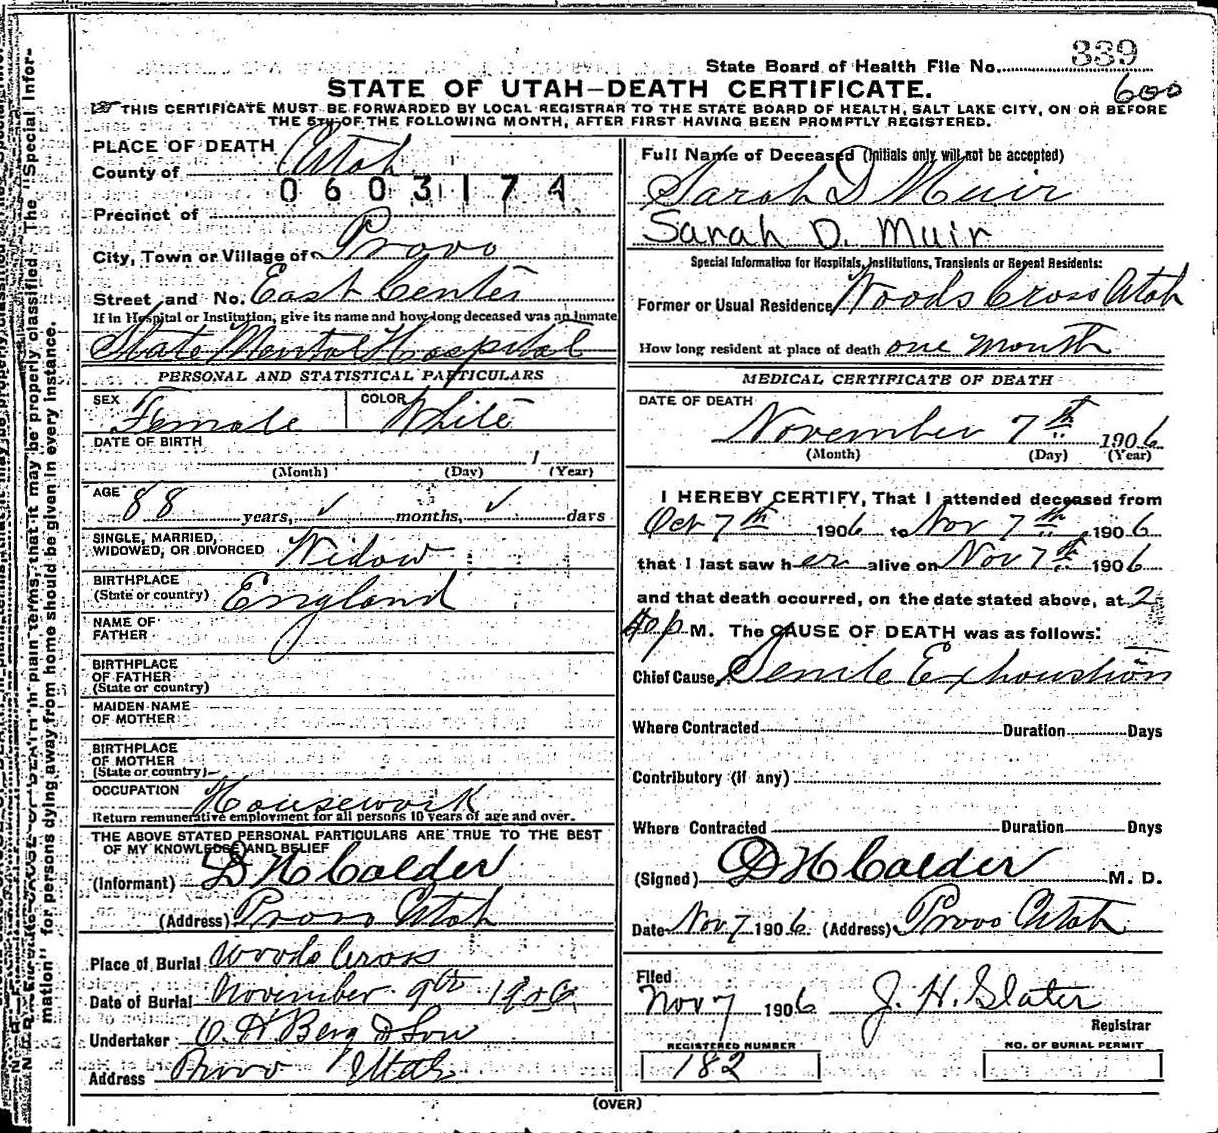 339
State Board of Health File No.
STATE OF UTAH—DEATH CERTIFICATE.
600
THIS CERTIFICATE MUST BE FORWARDED BY LOCAL REGISTRAR TO THE STATE BOARD OF HEALTH, SALT LAKE CITY, ON OR BEFORE
THE 5TH OF THE FOLLOWING MONTH, AFTER FIRST HAVING BEEN PROMPTLY REGISTERED.
PLACE OF DEATH
County of Utah
0603174
Precinct of
City, Town or Village of Provo
Street and No. East Center
If in Hospital or Institution, give its name and how long deceased was an inmate
State Mental Hospital
PERSONAL AND STATISTICAL PARTICULARS
SEX Female COLOR White
DATE OF BIRTH
1
(Month) (Day) (Year)
AGE 88 years, ✓ months, ✓ days
SINGLE, MARRIED,
WIDOWED, OR DIVORCED Widow
BIRTHPLACE
(State or country) England
NAME OF
FATHER
BIRTHPLACE
OF FATHER
(State or country)
MAIDEN NAME
OF MOTHER
BIRTHPLACE
OF MOTHER
(State or country)
OCCUPATION Housework
Return remunerative employment for all persons 10 years of age and over.
THE ABOVE STATED PERSONAL PARTICULARS ARE TRUE TO THE BEST
OF MY KNOWLEDGE AND BELIEF
(Informant) D H Calder
(Address) Provo Utah
Place of Burial Woods Cross
Date of Burial November 9th 1906
Undertaker O. H Berg & Son
Address Provo Utah
Full Name of Deceased (Initials only will not be accepted)
Sarah D Muir
Sarah D. Muir
Special Information for Hospitals, Institutions, Transients or Recent Residents:
Former or Usual Residence Woods Cross Utah
How long resident at place of death one month
MEDICAL CERTIFICATE OF DEATH
DATE OF DEATH
November 7th 1906
(Month) (Day) (Year)
I HEREBY CERTIFY, That I attended deceased from
Oct 7th 1906 to Nov 7th 1906
that I last saw her alive on Nov 7th 1906
and that death occurred, on the date stated above, at 2
40 p M. The CAUSE OF DEATH was as follows:
Chief Cause, Senile Exhoustion
Where Contracted Duration Days
Contributory (if any)
Where Contracted Duration Days
(Signed) D H Calder M. D.
Date Nov 7 1906 (Address) Provo Utah
Filed
Nov 7 1906 J. H. Slater
Registrar
REGISTERED NUMBER
182
NO. OF BURIAL PERMIT
(OVER)
in plain terms, that it may be properly classified. The "Special Infor-
mation" for persons dying away from home should be given in every instance.